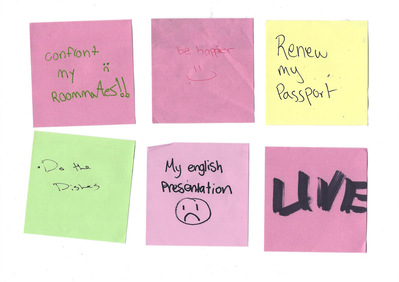 Confront
my
Roommates!!
be happier
Renew
my
Passport
• Do the
Dishes
My english
Presentation
LIVE